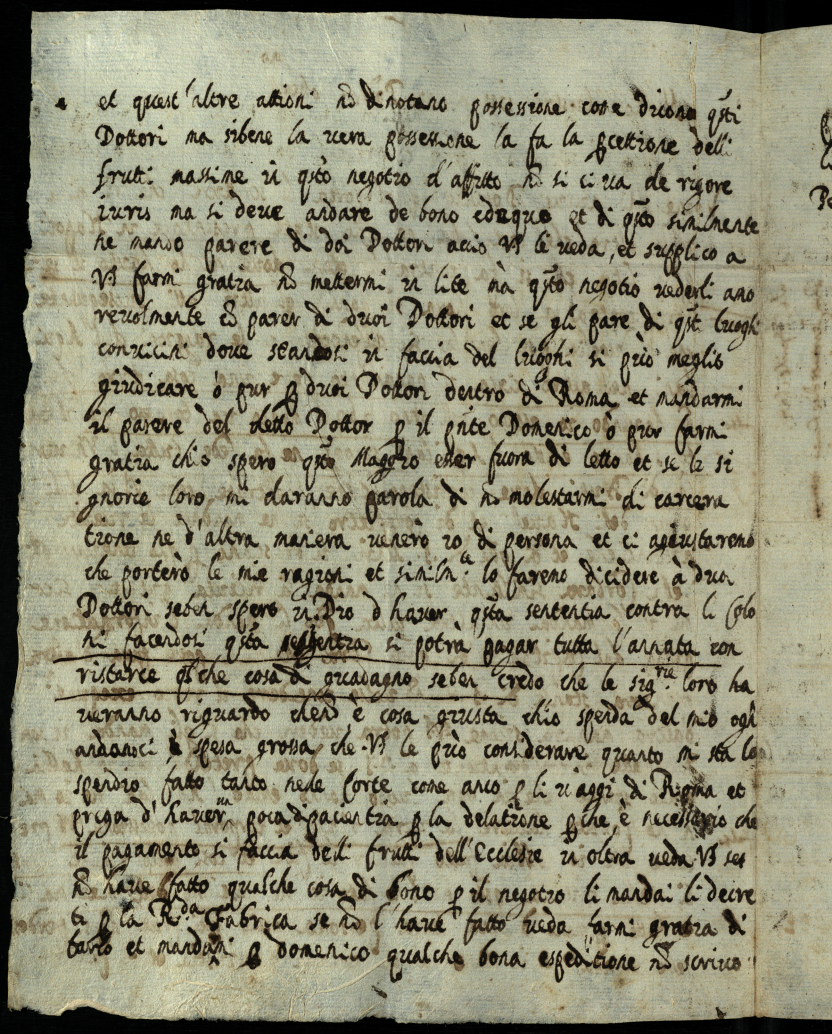 et quest'altre attioni nõ dinotano possessione come dicono q̃sti
Dottori ma sibene la vera possessione la fa la pcettione delli
frutti massime in q̃sto negotio d'affitto nõ si ci va de rigore
iuris ma si deve andare de bono et equo et di q̃sto similmente
ne mando parere di doi Dottori acciò VS le veda, et supplico a
VS farmi gratia nõ mettermi in lite mà q̃sto negotio vederli amo
revolmente cõ parer di duoi Dottori et se gli pare di q̃sti luoghi
convicini dove standosi in faccia del luoghi si può meglio
giudicare ò pur p duoi Dottori dentro di Roma et mandarmi
il parere del detto Dottor p il pñte Domenico ò pur farmi
gratia ch'io spero q̃sto Maggio esser fuora di letto et se le si
gnorie loro mi daranno parola di nõ molestarmi di carcera
tione ne d'altra maniera venerò io di persona et ci agiustaremo
che porterò le mie ragioni et similm.te lo faremo dicidere à duoi
Dottori seben spero in Dio d'haver q̃sta sententia contra li Colo
ni facendosi q̃sta sententia si potrà pagar tutta l'annata con
ristarce q̃lche cosa di guadagno seben credo che le sig.rie loro ha
veranno riguardo che nõ è cosa giusta ch'io spenda del mio ogni
andonoci è spesa grossa che VS le può considerare quanto mi sta lo
spendio fatto tanto nele Corte come anco p li viaggi di Roma et
prega d'haver poca di pacientia p la delatione pche è necessario che
il pagamento si faccia delli frutti dell'Ecclesie in oltra veda VS se
nõ have fatto qualche cosa di bono p il negotio li mandai li decre
ti p la R.da Fabrica se nõ l'have fatto veda farmi gratia di
farlo et mandarmi p Domenico qualche bona espeditione nõ scrivo